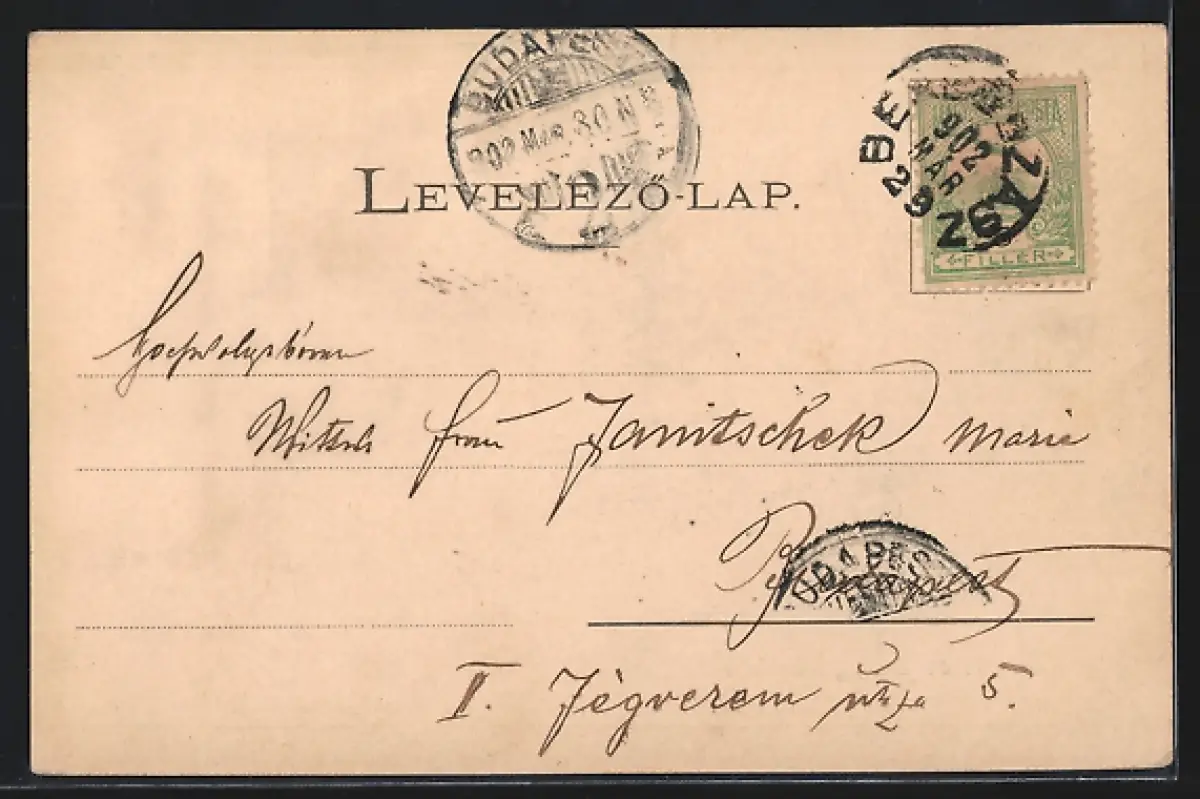 BUDAPEST
902 MAR 30 N
902
MAR
29
FILLÉR
LEVELEZŐ-LAP.
Hochwolgeboren
Frau Janitschek Marie
Budapest
BUDAPES
II. Jégverem utza 5.